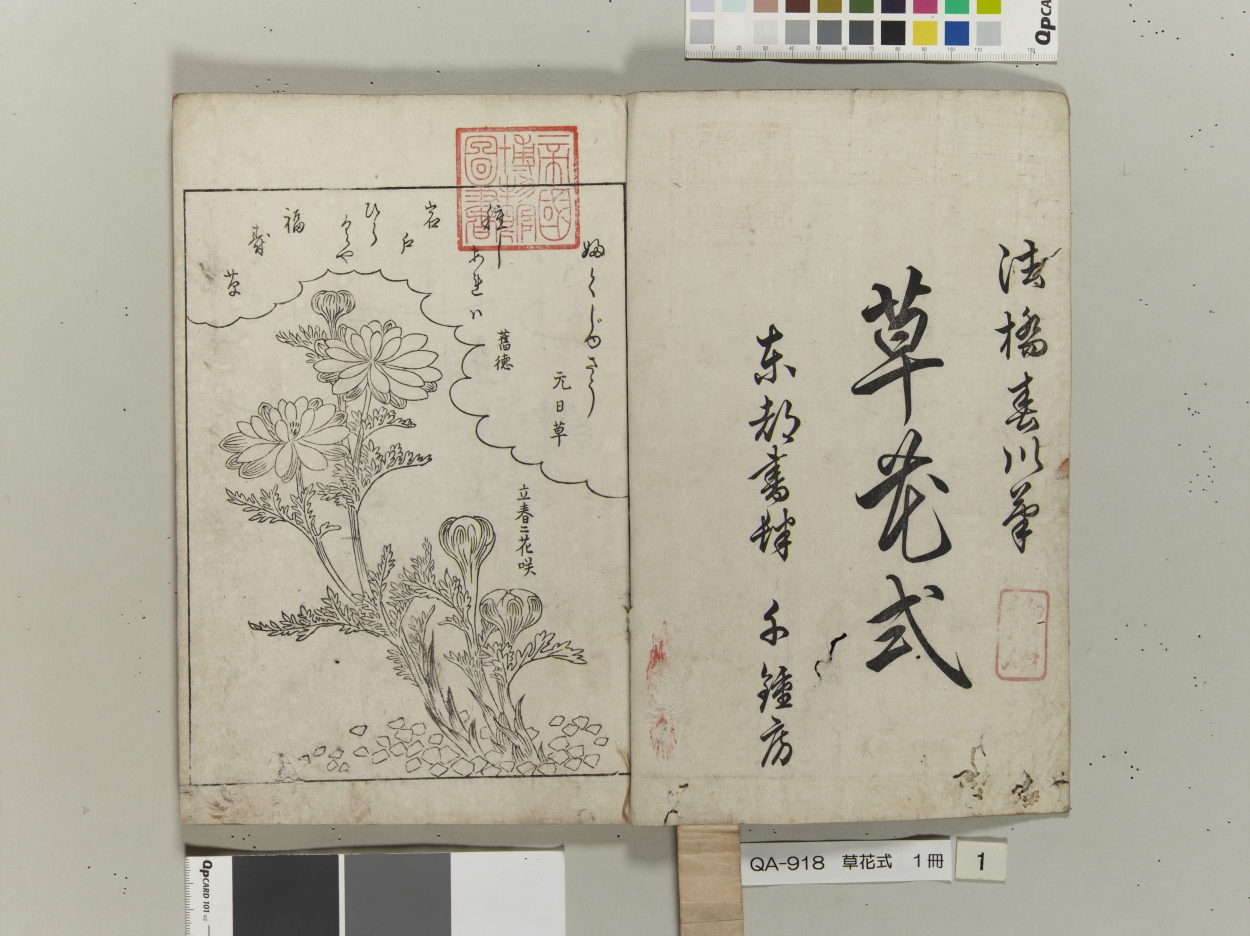 法橋春川筆
草花式
東都書肆 千鍾房
ふくじゆさう
元日草
種し
あれハ
舊徳
岩
戸
ひら
くや
福
壽
草
立春ニ花咲
帝國
博物館
圖書
QA-918 草花式 1冊
1
QpCARD 101 v3
QpCA